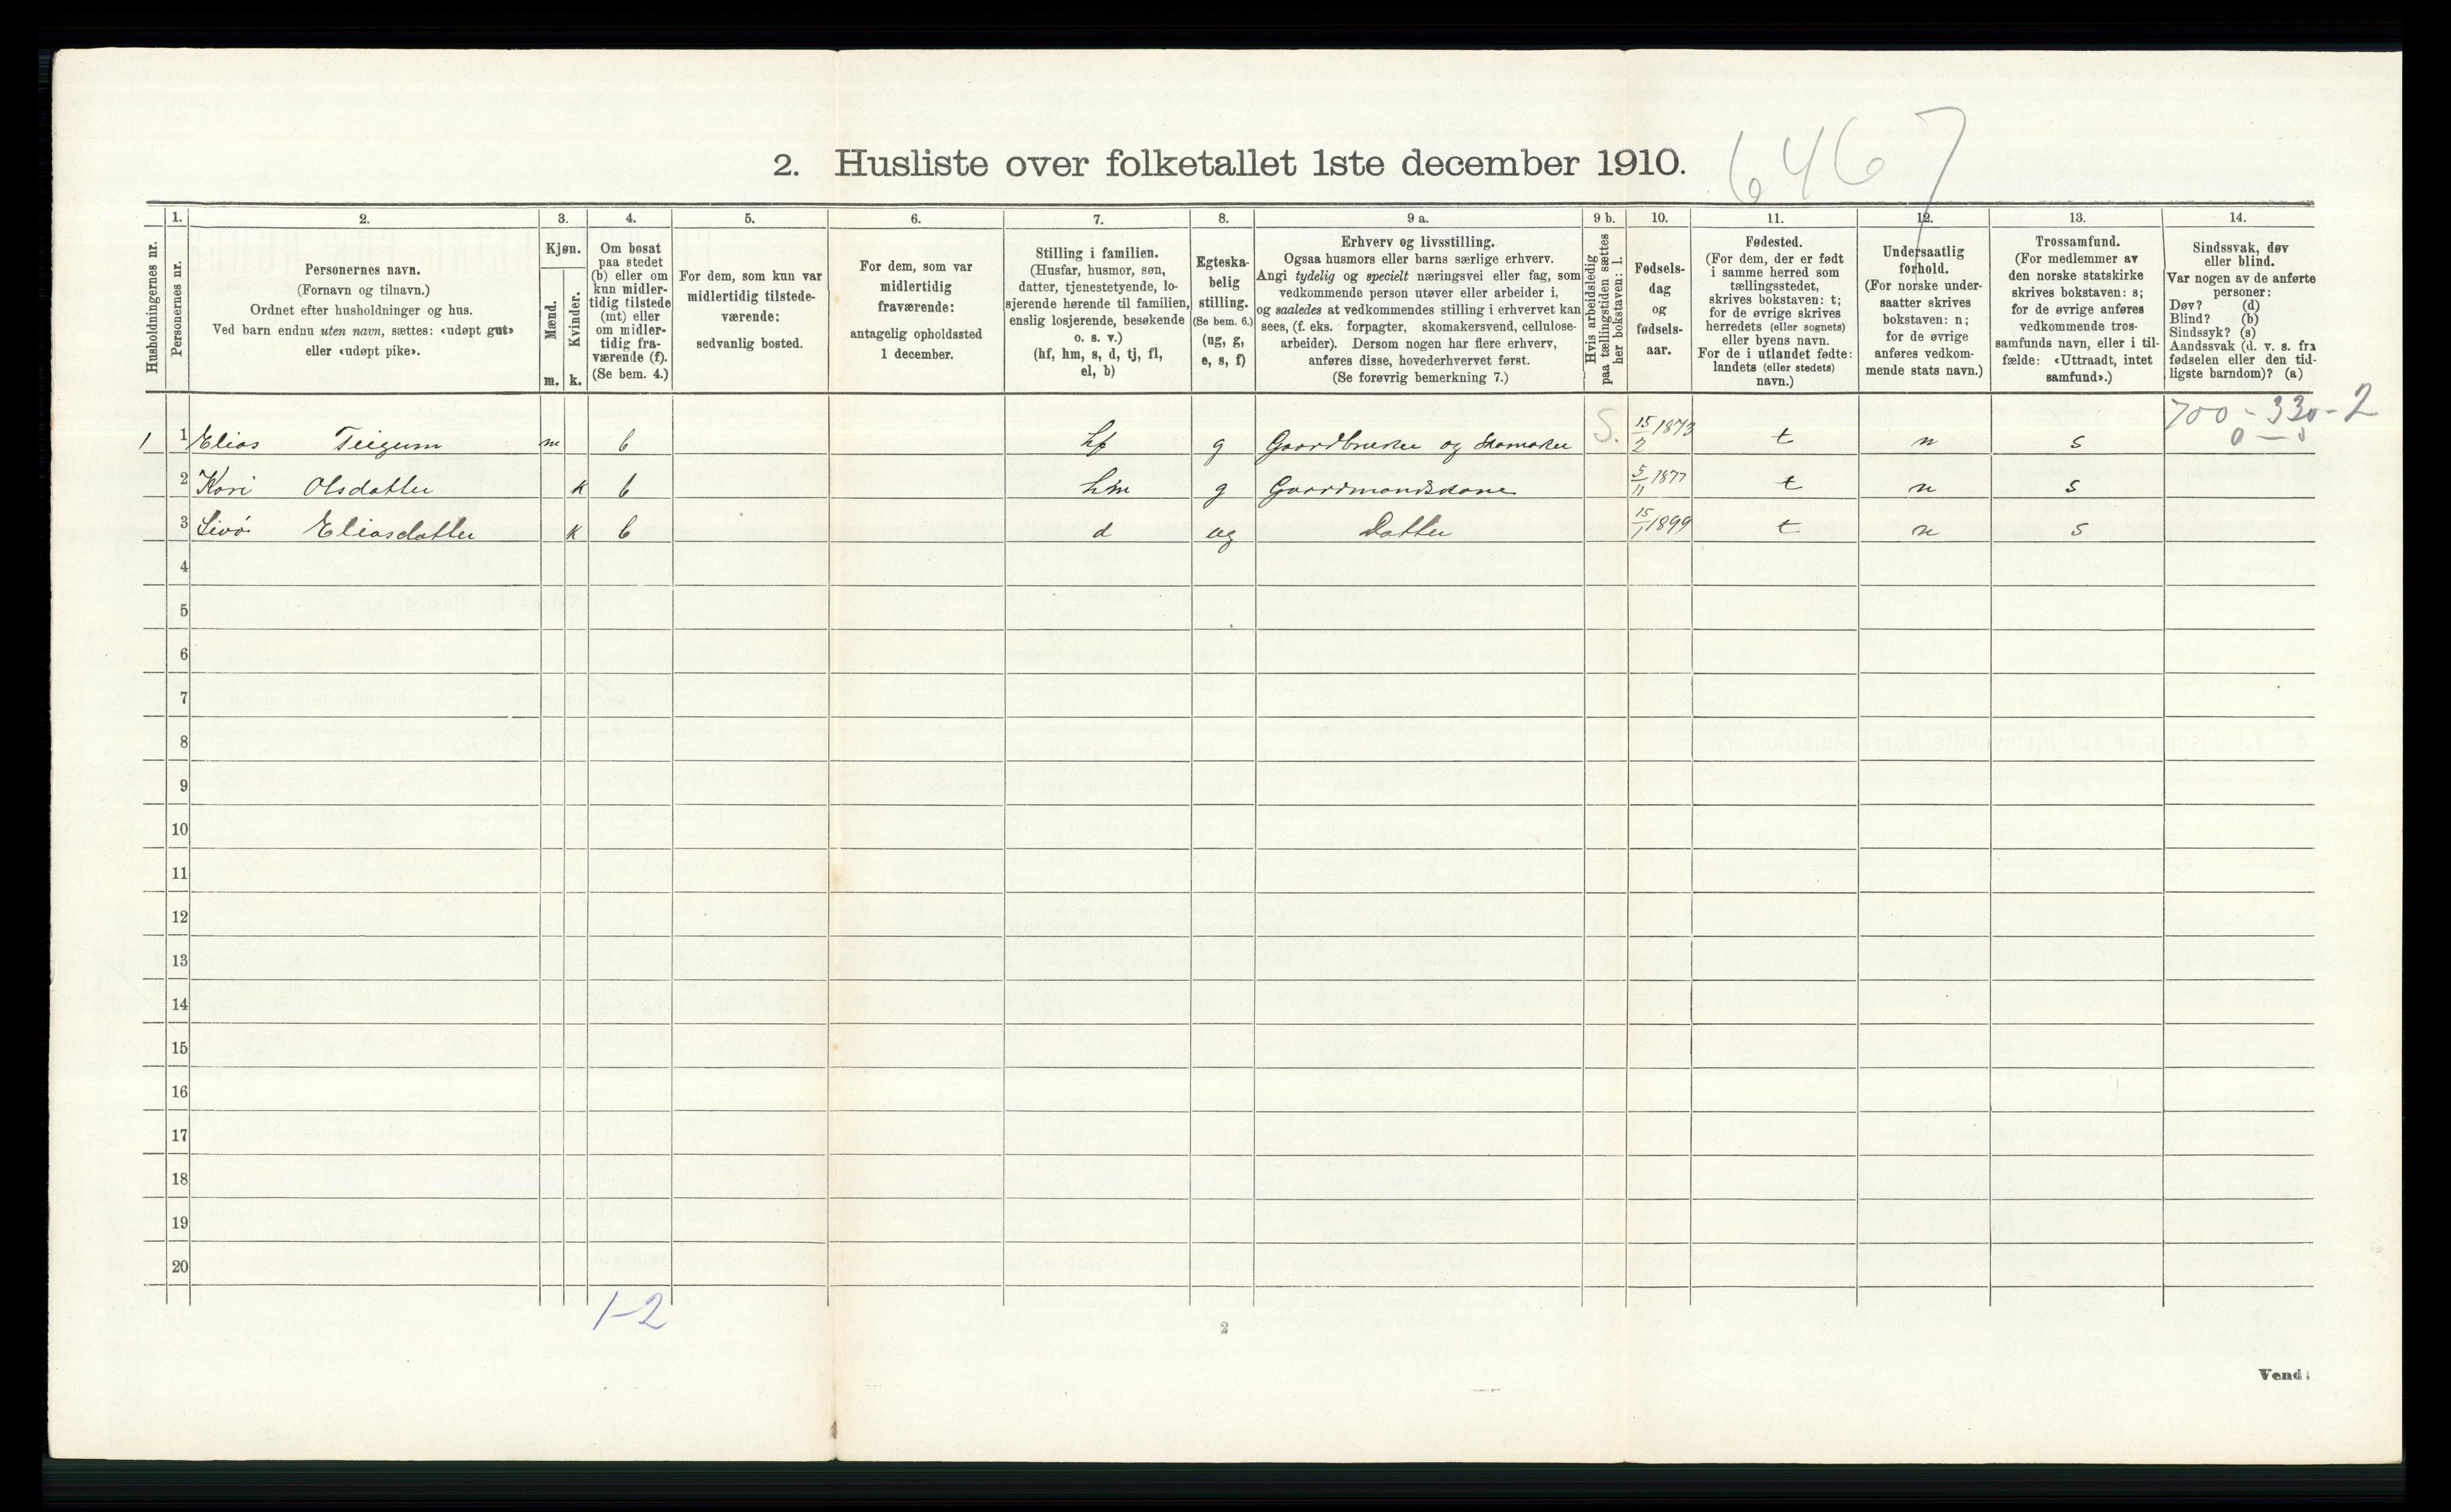 6467
2. Husliste over folketallet 1ste december 1910.
Husholdningernes nr.
1.
Personernes nr.
2.
Personernes navn.
(Fornavn og tilnavn.)
Ordnet efter husholdninger og hus.
Ved barn endnu uten navn, sættes: «udøpt gut»
eller «udøpt pike».
3.
Kjøn.
Mænd.
m.
Kvinder.
k.
4.
Om bosat
paa stedet
(b) eller om
kun midler-
tidig tilstede
(mt) eller
om midler-
tidig fra-
værende (f).
(Se bem. 4.)
5.
For dem, som kun var
midlertidig tilstede-
værende:
sedvanlig bosted.
6.
For dem, som var
midlertidig
fraværende:
antagelig opholdssted
1 december.
7.
Stilling i familien.
(Husfar, husmor, søn,
datter, tjenestetyende, lo-
sjerende hørende til familien,
enslig losjerende, besøkende
o. s. v.)
(hf, hm, s, d, tj, fl,
el, b)
8.
Egteska-
belig
stilling.
(Se bem. 6.)
(ug, g,
e, s, f)
9 a.
Erhverv og livsstilling.
Ogsaa husmors eller barns særlige erhverv.
Angi tydelig og specielt næringsvei eller fag, som
vedkommende person utøver eller arbeider i,
og saaledes at vedkommendes stilling i erhvervet kan
sees, (f. eks. forpagter, skomakersvend, cellulose-
arbeider). Dersom nogen har flere erhverv,
anføres disse, hovederhvervet først.
(Se forøvrig bemerkning 7.)
9 b.
Hvis arbeidsledig
paa tællingstiden sættes
her bokstaven: l.
10.
Fødsels-
dag
og
fødsels-
aar.
11.
Fødested.
(For dem, der er født
i samme herred som
tællingsstedet,
skrives bokstaven: t;
for de øvrige skrives
herredets (eller sognets)
eller byens navn.
For de i utlandet fødte:
landets (eller stedets)
navn.)
12.
Undersaatlig
forhold.
(For norske under-
saatter skrives
bokstaven: n;
for de øvrige
anføres vedkom-
mende stats navn.)
13.
Trossamfund.
(For medlemmer av
den norske statskirke
skrives bokstaven: s;
for de øvrige anføres
vedkommende tros-
samfunds navn, eller i til-
fælde: «Uttraadt, intet
samfund».)
14.
Sindssvak, døv
eller blind.
Var nogen av de anførte
personer:
Døv? (d)
Blind? (b)
Sindssyk? (s)
Aandssvak (d. v. s. fra
fødselen eller den tid-
ligste barndom)? (a)
700 - 330 - 2
1 1 Elias Teigum m b hf g Gaardbruker og Skomaker S. 15/2 1873 t n s
2 Kari Olsdatter k b hm g Gaardmandskone 5/11 1877 t n s
3 Sivø Eliasdatter k b d ug Datter 15/1 1899 t n s
4
5
6
7
8
9
10
11
12
13
14
15
16
17
18
19
20
1-2
2
Vend!